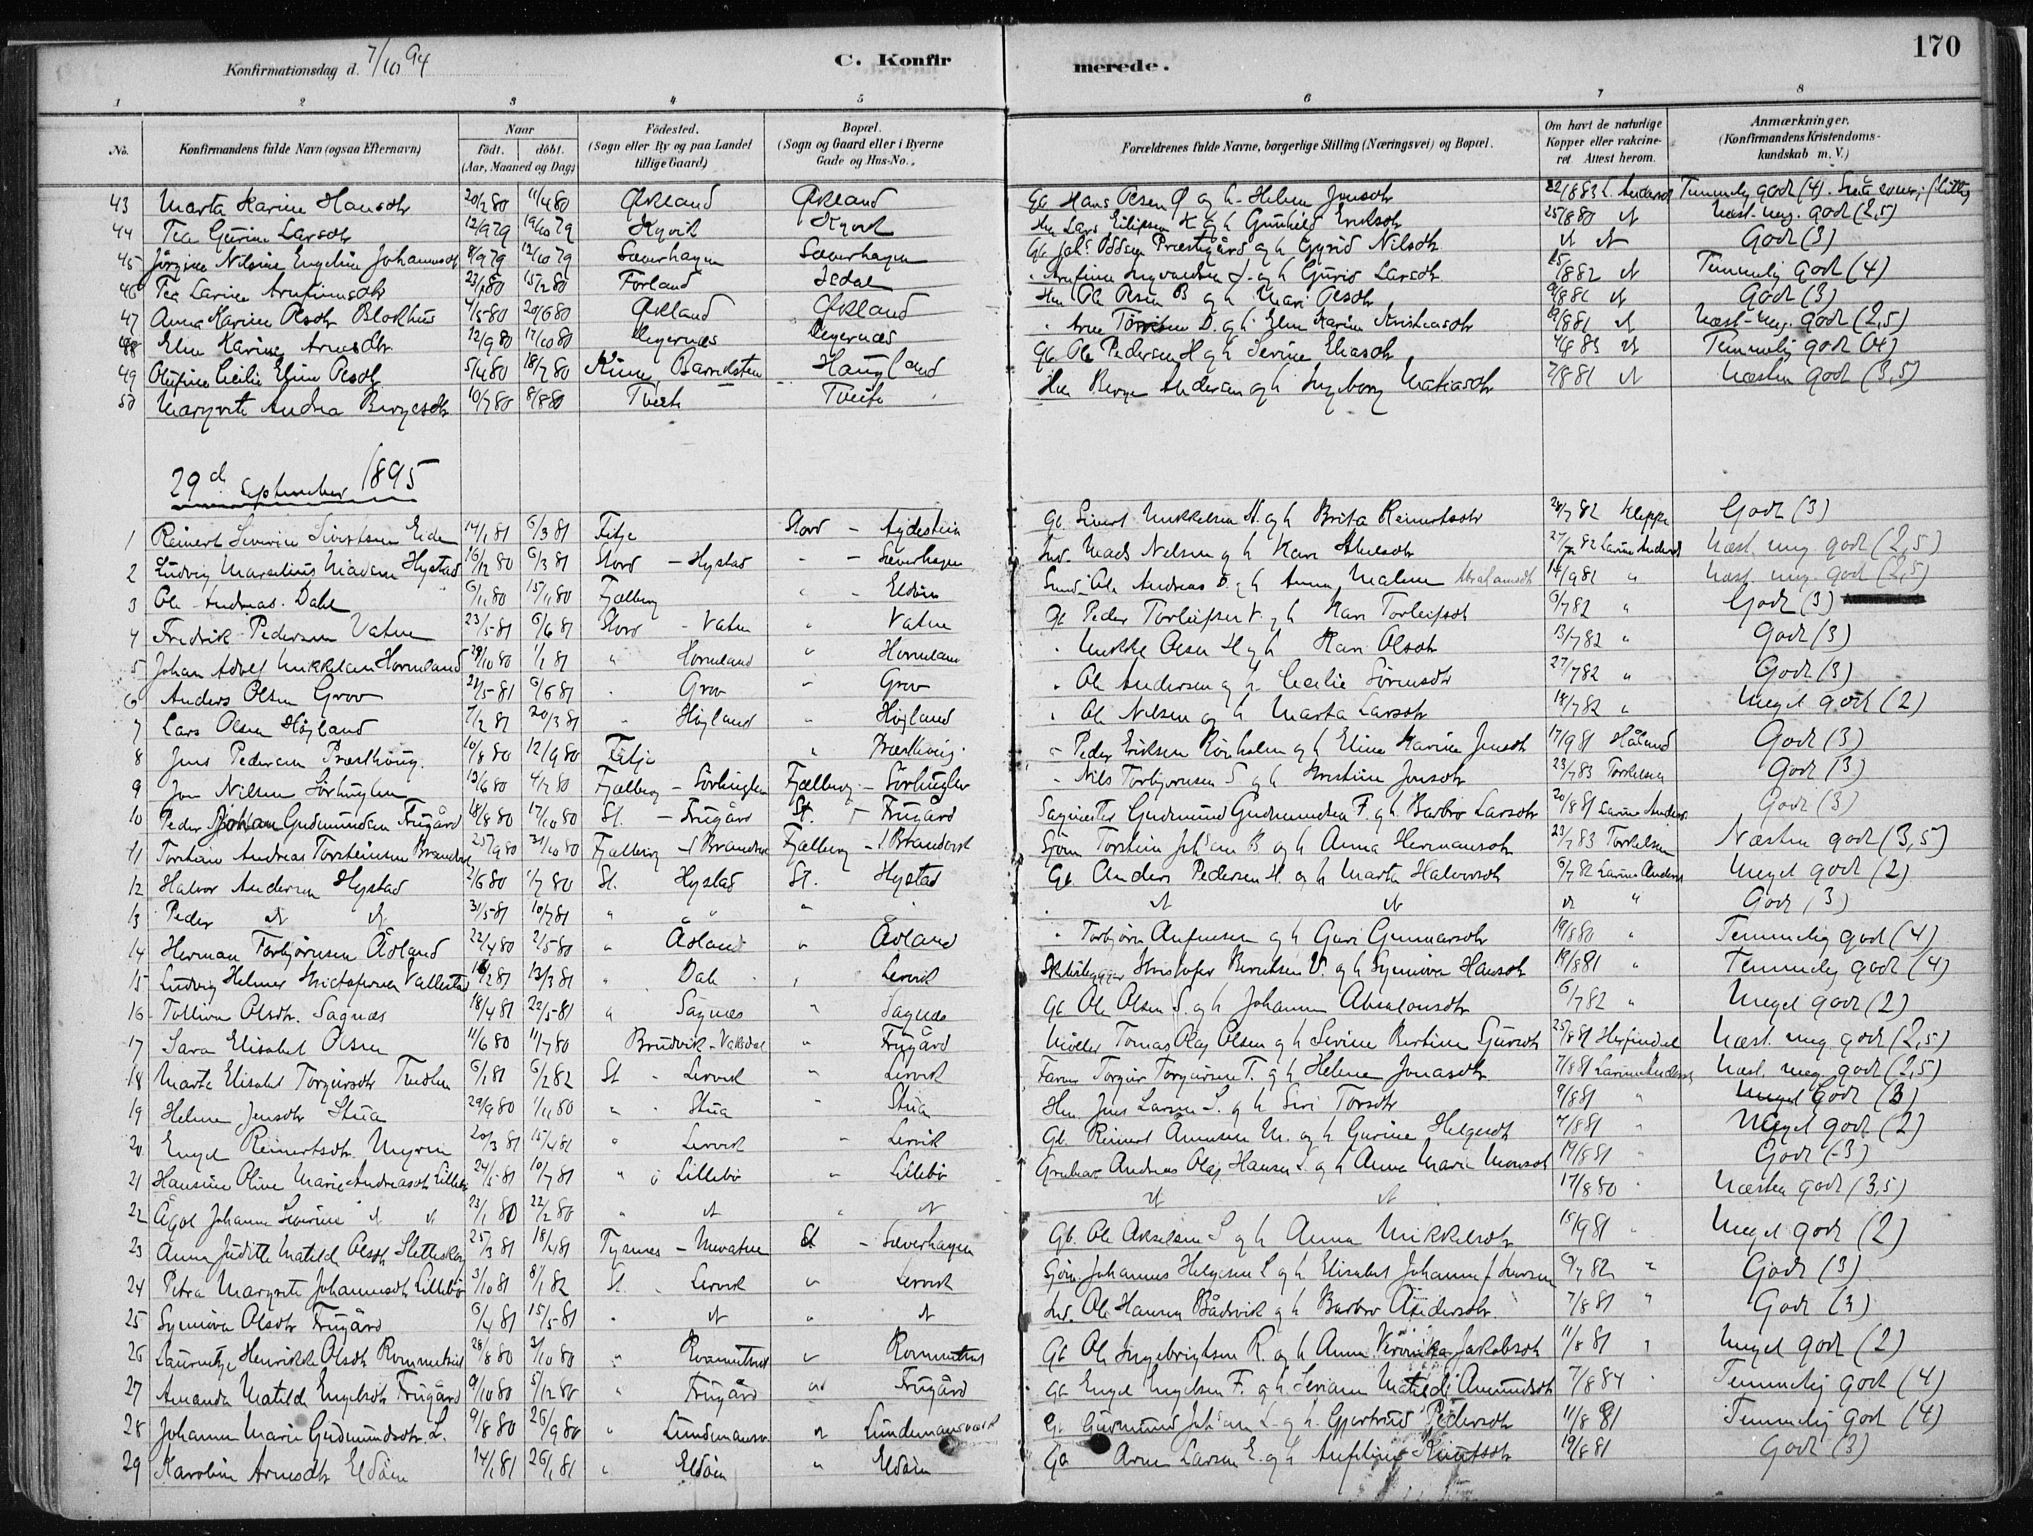 Konfirmationsdag d. 7/10 94
C. Konfir merede.
170
1 2 3 4 5 6 7 8
No. Konfirmandens fulde Navn (ogsaa Efternavn) Naar født. døbt. (Aar, Maaned og Dag) Fødested. (Sogn eller By og paa Landet tillige Gaard) Bopæl. (Sogn og Gaard eller i Byerne Gade og Hus-No. Forældrenes fulde Navne, borgerlige Stilling (Næringsvei) og Bopæl. Om havt de naturlige Kopper eller vakcineret. Attest herom. Anmærkninger. (Konfirmandens Kristendomskundskab m. V.)
43 Marta Karine Hansdtr 20/2 80 11/4 80 Økland Økland Gb Hans Olsen Ø og h. Helene Jonsdtr 22/8 83 L. Anders Temmelig godt (4).
44 Tea Gurine Larsdtr 12/9 79 19/10 79 Kyvik Kyvik Hm Lars Eilifsen K og h Gunhild Eriksdtr 25/8 80 Næst. meg. godt (2,5)
45 Jørgine Nilsine Engeline Johannesdtr 8/9 79 12/10 79 Sæverhagen Sæverhagen Gb Joh. Oddsen Præstgård og h Gyrid Nilsdtr Godt (3)
46 Tea Larine Arnfinnsdtr 23/1 80 15/2 80 Førland Isdal Arnfinn Ingvaldsen F. og h Guris Larsdtr 15/8 82 Temmelig godt (4)
47 Anna Karine Olsdtr Blokhus 4/5 80 20/6 80 Økland Økland Hm Ole Olsen B og h Mari Olsdtr 9/8 81 Godt (3)
48 Elen Karine Arnesdtr. 12/9 80 17/10 80 Degernæs Degernæs Arne D. og h. Elen Karine Kristensdtr 9/8 81 Næst-meg. godt (2,5)
49 Olufine Cecilie Eline Olsdtr 5/4 80 18/7 80 Haugland Gb. Ole Pedersen H og h Serine Eliasdtr 4/8 83 Temmelig godt (4)
50 Margrete Andrea Bergesdtr 10/7 80 8/8 80 Tveite Tveite Hm Berge Andersen og h Ingeborg Matiasdtr 7/8 81 Næsten godt (3,5)
29de september 1895
1 Reinert Severin Sivertsen Eide 14/1 81 6/3 81 Fitje Stord - Gb Sivert Mikkelsen H. og h Brita Reinertsdtr 24/7 82 Kleppe Godt (3)
2 Ludvig Marselius Madsen Hystad 16/12 80 6/3 81 Stord - Hystad " - Sæverhagen Ind. Mads Nilsen og h Kari Nilsdtr 27/7 82 Larine Anders Næst. meg godt (2,5)
3 Ole Andreas Dahl 6/11 80 15/11 80 Fjelberg " - Eldøen Ole Andreas D. og h Anna Malene Abrahamsdtr 14/9 81 " Næst. meg. godt (2,5)
4 Fredrik Pedersen Vatne 23/5 81 6/6 81 Stord - Vatne " Vatne Gb Peder Torleifsen V. og h Kari Torleifsdtr 6/7 82 " Godt (3)
5 Johan Adolf Mikkelsen Horneland 29/10 80 1/1 81 " Horneland " Horneland " Mikkel Olsen H og h Kari Olsdtr 13/7 82 " Godt (3)
6 Anders Olsen Grov 21/5 81 6/6 81 " Grov " Grov " Ole Andersen og h Cecilie Sørensdtr 27/7 82 " Godt (3)
7 Lars Olsen Høgland 7/2 81 20/3 81 " Høgland " Høgland " Ole Nilsen og h Marta Larsdtr 18/7 82 " Meget godt (2)
8 Jens Pedersen Præsthaug. 10/8 80 12/9 80 Fitje " Præsthaug. " Peder Eriksen Rørholm og h Eline Karine Jensdtr 17/9 81 Håland Godt (3)
9 Jon Nilsen Sørhuglen 13/6 80 4/7 80 Fjelberg - Sørhuglen Fjelberg - Sørhuglen " Nils Torbjørnsen S og h Kristine Jonsdtr 23/7 83 Torkelsen Godt (3)
10 Peder Johan Gudmundsen Frugård 18/8 80 17/10 80 St. - Frugård St. - Frugård Sagmester Gudmund Gudmundsen F og h. Barbro Larsdtr 20/8 81 Larine Anders Godt (3)
11 Torstein Andreas Torsteinsen 25/9 80 31/10 80 Fjelberg - Fjelberg - Sjøm Torstein Joh'sen B og h Anna Hermansdtr 23/7 83 Torkelsen Næsten godt (3,5)
12 Halvor Andersen Hystad 2/6 80 4/7 80 St. Hystad St. Hystad Gb. Anders Pedersen H. og h Marta Halvorsdtr 6/7 82 Larine Anders Meget godt (2)
13 Peder 31/5 81 10/7 81 " " " " " Godt (3)
14 Herman Torbjørnsen Ådland 22/4 80 2/5 80 " Ådland " Ådland " Torbjørn Anfinsen og h Guri Gunnarsdtr 19/8 80 " Temmelig godt (4)
15 Ludvig Helmer Kristofersen Vallestad 1/2 81 13/3 81 " Dale " Lervik Kristofer Berntsen V. og h Synneva Hansdtr 19/8 81 " Temmelig godt (4)
16 Tolliva Olsdtr. Sagnæs 18/4 81 22/5 81 " Sagnæs " Sagnæs Gb Ole Olsen S. og h Johanna Absalonsdtr 6/7 82 " Meget godt (2)
17 Sara Elisabet Olsen 11/6 80 11/7 80 Brudvik - Valsdal " Frugård Møller Tomas Olaj Olsen og h Sevine Bertine Sjursdtr 25/8 81 Herfindal Næst. meg. godt (2,5)
18 Marta Elisabet Torgeirsdtr 6/1 81 6/2 82 St " Lervik " Lervik Farver Torgeir Torgeirsen T. og h Helene Jonasdtr 7/8 81 Larine Anders Næst. meg. godt (2,5)
19 Helene Jensdtr Stua 29/9 80 1/11 80 " Stua " Stua Hm. Jens Larsen S. og h Siri Torsdtr 9/8 81 " Meget Godt (3)
20 Engel Reinertsdtr Myren 20/3 81 15/4 81 " Lervik " Lervik Gb. Reinert Amundsen M. og h Gurine Helgesdtr 7/8 81 " Meget godt (2)
21 Hansine Oline Marie Andreasdtr Lillebø 24/5 81 10/7 81 " Lillebø " Lillebø Andreas Olaj Hansen L. og h Anna Marie Monsdtr 19/8 81 " Godt (3)
22 Ågot Johanna Severine 23/1 80 22/2 80 " " 17/8 80 " Næsten godt (3,5)
23 Anna Juditt Matilde Olsdtr 25/3 81 18/4 81 Tysnes - Mevatne St - Sæverhagen Gb. Ole Akselsen S og h Anna Mikkelsdtr 15/9 81 " Meget godt (2)
24 Petra Margrete Johannesdtr Lillebø 3/10 81 8/1 82 St. Lervik " Lervik Sjøm. Johannes Helgesen L og h Elisabet Johanna 6/7 82 " Godt (3)
25 Synneva Olsdtr Frugård 6/4 81 15/5 81 " " Ind. Ole Hansen Bådsvik og h Barbro Andersdtr 7/8 81 " Godt (3)
26 Lauritze Henrikke Olsdtr Rommetveit 28/8 80 3/10 80 " Rommetveit " Rommetveit Gb Ole Ingebrigtsen R. og h Anna Veronika Jakobsdtr 11/8 81 " Meget godt (2)
27 Amanda Matilde Engelsdtr Frugård 9/10 80 5/12 80 " Frugård " Frugård Gb Engel Engelsen F. og h Seriane Matilde Amundsdtr 7/8 84 " Temmelig godt (4)
28 Johanna Marie Gudmundsdtr. L. 9/8 80 26/9 80 " Lundemansv. " Lundemansværk Gb Gudmund Joh'sen L. og h. Gjertrud Pedersdtr 11/8 81 Temmelig godt (4)
29 Karoline Arnesdtr Eldøen 14/1 81 26/1 81 " Eldøen " Eldøen Gb Arne Larsen E. og h 19/8 81 Godt (3)